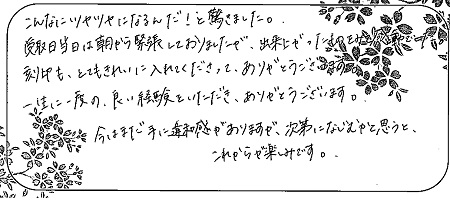 こんなにツヤツヤになるんだ！と驚きました。
当日は朝から緊張しておりましたが、出来上がった
刻印も、とてもきれいに入れてくださって、ありがとうございます。
一生に一度の、良い経験をいただき、ありがとうございます。
今はまだ手に違和感がありますが、次第になじむかと思うと、
これからが楽しみです。